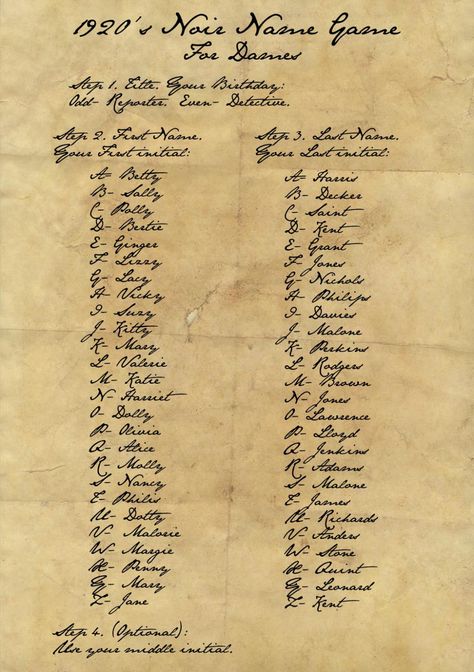 1920's Noir Name Game
For Dames
Step 1. Title. Your Birthday:
Odd- Reporter. Even- Detective.
Step 2. First Name.
Your First initial:
A- Betty
B- Sally
C- Polly
D- Bertie
E- Ginger
F- Lizzy
G- Lacy
H- Vicky
I- Suzy
J- Kitty
K- Mary
L- Valerie
M- Katie
N- Harriet
O- Dolly
P- Olivia
Q- Alice
R- Molly
S- Nancy
T- Philis
U- Dotty
V- Malorie
W- Margie
X- Penny
Y- Mary
Z- Jane
Step 3. Last Name.
Your Last initial:
A= Harris
B- Decker
C- Saint
D- Kent
E- Grant
F- Jones
G- Nichols
H- Philips
I- Davies
J- Malone
K- Perkins
L- Rodgers
M- Brown
N- Jones
O- Lawrence
P- Lloyd
Q- Jenkins
R- Adams
S- Malone
T- James
U- Richards
V- Anders
W- Stone
X- Quint
Y- Leonard
Z- Kent
Step 4. (Optional):
Use your middle initial.